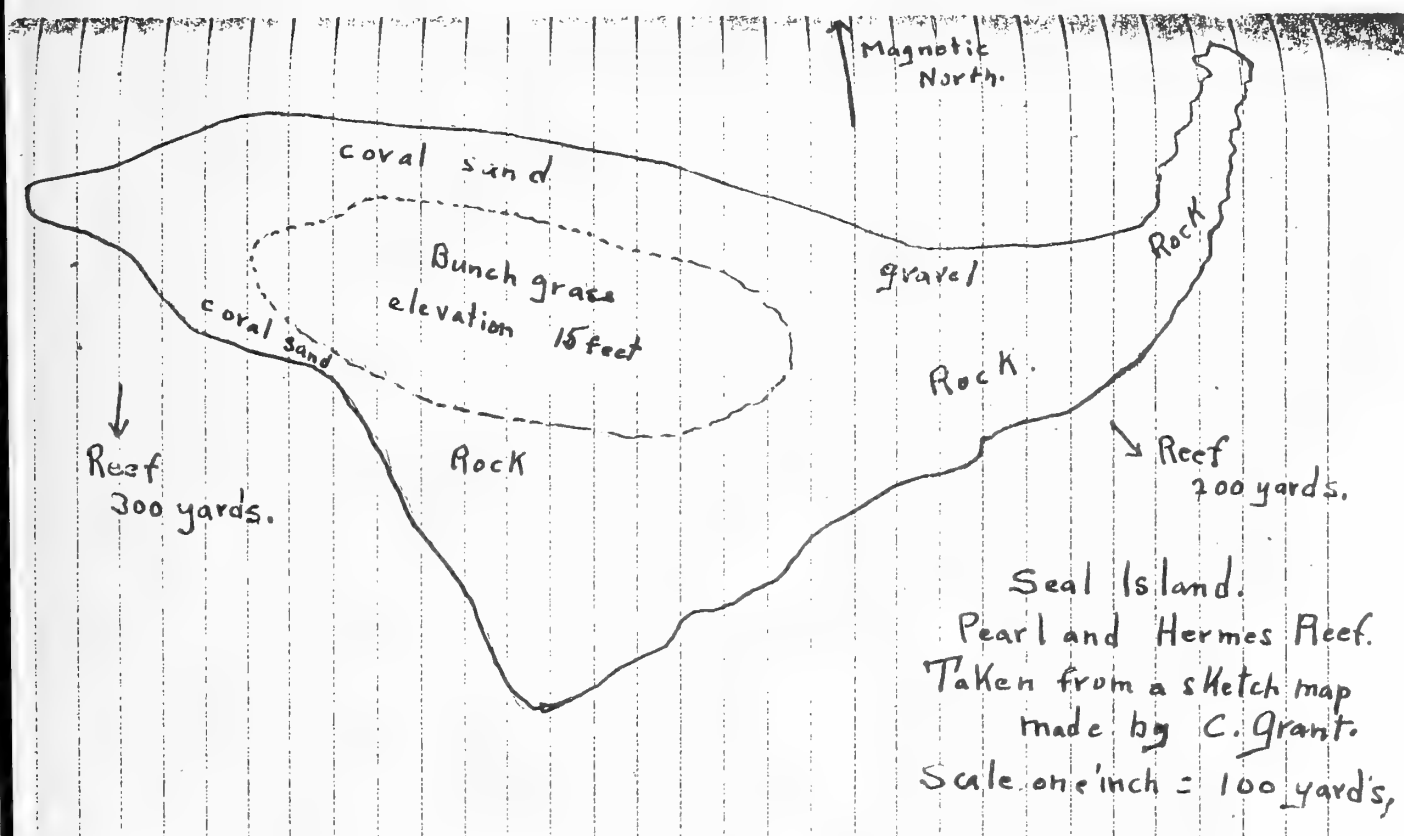 Magnetic
North.
coral sand
Bunch grass
elevation 15 feet
gravel
Rock
coral sand
Rock.
Rock
Reef
300 yards.
Reef
200 yards.
Seal Island.
Pearl and Hermes Reef.
Taken from a sketch map
made by C. Grant.
Scale one inch = 100 yards,